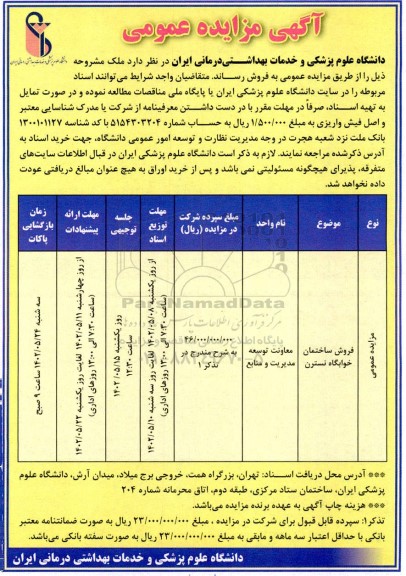 آگهی مزایده عمومی
دانشگاه علوم پزشکی و خدمات بهداشتی‌درمانی ایران در نظر دارد ملک مشروحه
ذیل را از طریق مزایده عمومی به فروش رساند. متقاضیان واجد شرایط می‌توانند اسناد
مربوطه را در سایت دانشگاه علوم پزشکی ایران یا پایگاه ملی مناقصات مطالعه نموده و در صورت تمایل
به تهیه اسناد، صرفاً در مهلت مقرر با در دست داشتن معرفینامه از شرکت یا مدرک شناسایی معتبر
و اصل فیش واریزی به مبلغ ۱/۵۰۰/۰۰۰ ریال به حساب شماره ۵۱۵۴۳۰۳۲۰۴ با کد شناسه ۱۳۰۰۱۰۱۱۲۷
بانک ملت نزد شعبه هجرت در وجه مدیریت نظارت و توسعه امور عمومی دانشگاه، جهت خرید اسناد به
آدرس ذکرشده مراجعه نمایند. لازم به ذکر است دانشگاه علوم پزشکی ایران در قبال اطلاعات سایت‌های
متفرقه، پذیرای هیچگونه مسئولیتی نمی باشد و پس از خرید اوراق به هیچ عنوان مبالغ دریافتی عودت
داده نخواهد شد.
نوع
موضوع
نام واحد
مبلغ سپرده شرکت در مزایده (ریال)
مهلت توزیع اسناد
جلسه توجیهی
مهلت ارائه پیشنهادات
زمان بازگشایی پاکات
مزایده عمومی
فروش ساختمان خوابگاه نسترن
معاونت توسعه مدیریت و منابع
۴۶/۰۰۰/۰۰۰/۰۰۰ به شرح مندرج در تذکر ۱
از روز یکشنبه ۱۴۰۲/۰۵/۰۸ لغایت روز سه شنبه ۱۴۰۲/۰۵/۱۰ (ساعت ۷:۳۰ الی ۱۳:۰۰ روزهای اداری)
روز یکشنبه ۱۴۰۲/۰۵/۱۵ ساعت ۱۲:۳۰
از روز چهارشنبه ۱۴۰۲/۰۵/۱۱ لغایت روز یکشنبه ۱۴۰۲/۰۵/۲۲ (ساعت ۷:۳۰ الی ۱۳:۰۰ روزهای اداری)
سه شنبه ۱۴۰۲/۰۵/۲۴ ساعت ۹ صبح
ParsNamadData
*** آدرس محل دریافت اسناد: تهران، بزرگراه همت، خروجی برج میلاد، میدان آرش، دانشگاه علوم
پزشکی ایران، ساختمان ستاد مرکزی، طبقه دوم، اتاق محرمانه شماره ۲۰۴
*** هزینه چاپ آگهی به عهده برنده مزایده می‌باشد.
تذکر۱: سپرده قابل قبول برای شرکت در مزایده ، مبلغ ۲۳/۰۰۰/۰۰۰/۰۰۰ ریال به صورت ضمانتنامه معتبر
بانکی با حداقل اعتبار سه ماهه و مابقی به مبلغ ۲۳/۰۰۰/۰۰۰/۰۰۰ ریال به صورت سفته بانکی می‌باشد.
دانشگاه علوم پزشکی و خدمات بهداشتی درمانی ایران